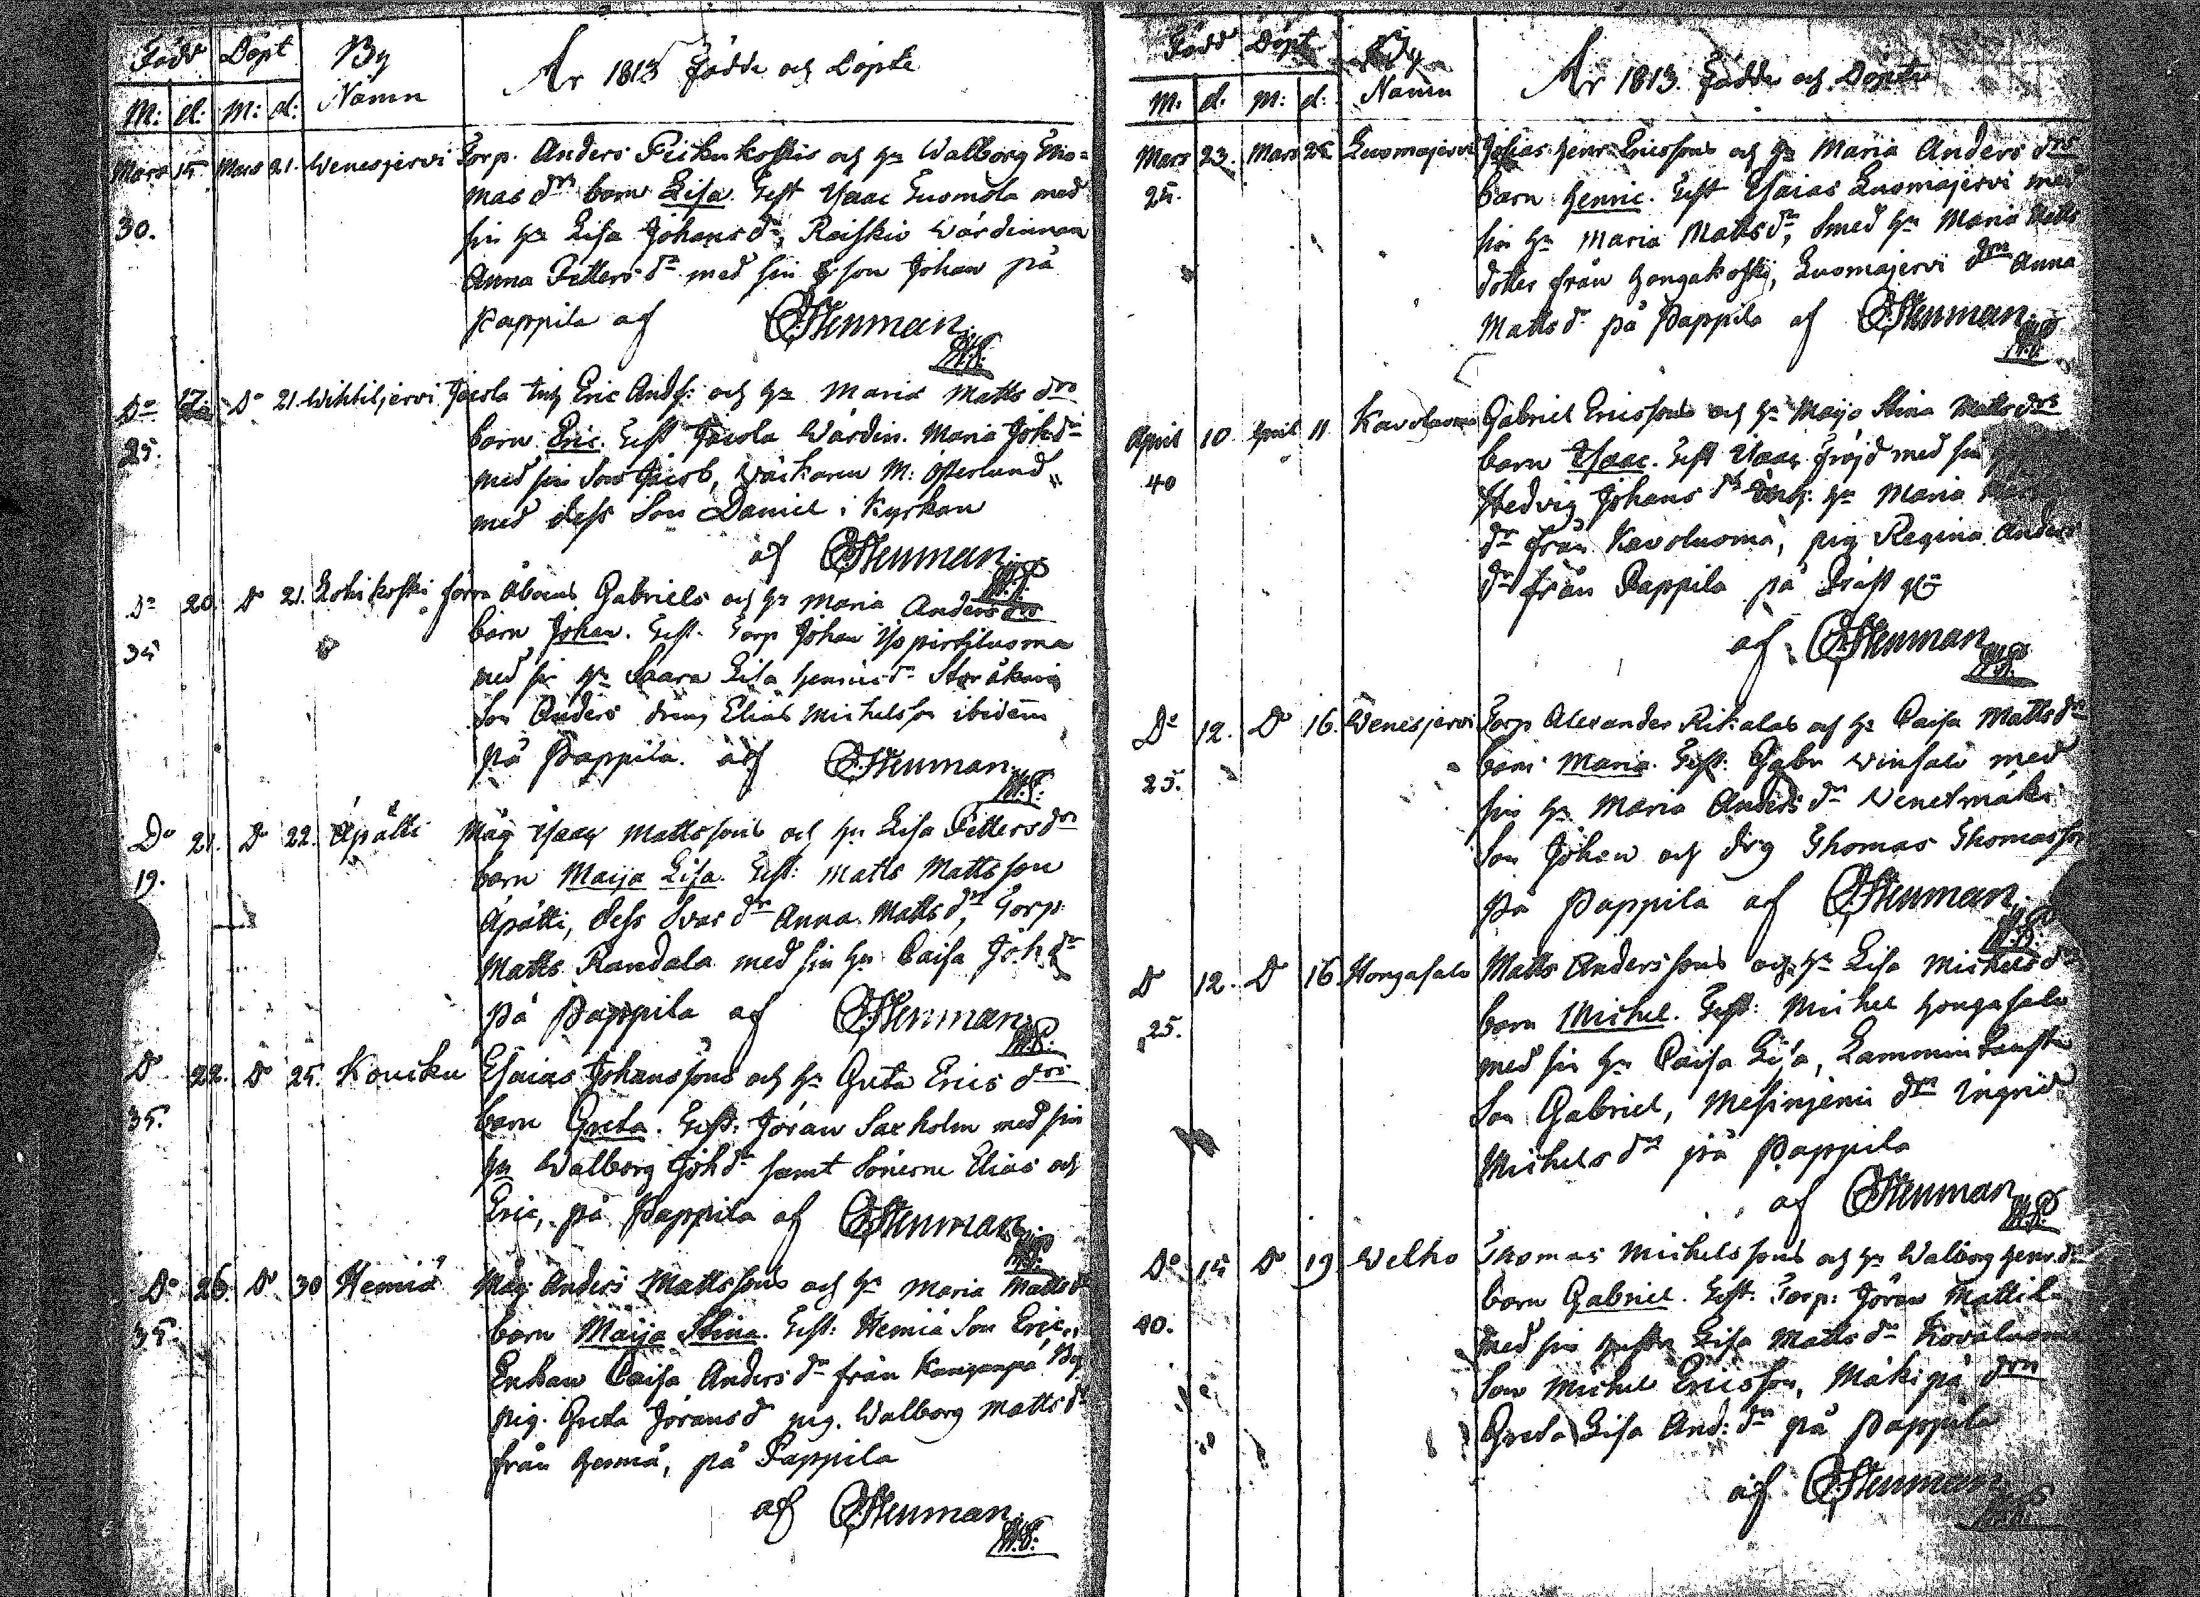 Född Döpt By
M: d: M: d: Namn
År 1813 Födde och Döpte
Mars 15 Mars 21. Wenesjervi Torp. Anders och hu Walborg Tho=
30. mas drs barn Lisa. Test Isaac Luomola med
sin hu Lisa Johans dr, Raiskio Wärdinnan
Anna Petters dr med sin son Johan på
Pappila af CHenman
Do 17 Do 21. Wihtiljervi Jacola Eric And: och hu Maria Matts drs
25. barn Eric. Test Jacola Wärdin. Maria Joh dr
med sin Son Jacob, M: Österlund
med dess Son Daniel i Kyrkan
af CHenman
Do 20 Do 21. Gabriels och hu Maria Anders drs
35 barn Johan. Test. Torp Johan
med sin hu Saara Lisa Henrics dr
Son Anders dräng Elias Michelsson ibidem
på Pappila. af CHenman
Do 21. Do 22. Äpätti Måg Isaac Mattssons och hu Lisa Petters drs
19. barn Maija Lisa. Test: Matts Mattsson
Äpätti, dess Svär dr Anna Matts dr, Torp.
Matts Randala med sin hu Caisa Joh dr
på Pappila af CHenman
Do 22. Do 25. Koucku Esaias Johanssons och hu Greta Erics drs
35. barn Greta. Test: Jöran Saxholm med sin
hu Walborg Joh dr samt Sönerne Elias och
Eric, på Pappila af CHenman
Do 26. Do 30 Hemiä Måg Anders Mattssons och hu Maria Matts dr
35. barn Maija Stina. Test: Hemiä Son Eric,
Enkan Caisa Anders dr från
pig. Greta Jörans dr pig. Walborg Matts dr
från Hemiä, på Pappila
af CHenman
Född Döpt By
M: d. M: d: Namn
År 1813. Födde och Döpte
Mars 23. Mars 25 Luomajervi Josias Henr Ericssons och hu Maria Anders drs
25. barn Henric. Test Esaias Luomajervi med
sin hu Maria Matts dr, Smed hu Maria Matts
dotter från Hongakoski, Luomajervi drn Anna
Matts dr på Pappila af CHenman
April 10 April 11 Gabriel Ericssons och hu Maija Stina Matts drs
40 barn Isaac. Test Isaac Fröjd med sin
Hedvig Johans dr hu Maria
dr från Kavoluoma, pig Regina Anders
dr från Pappila på Präst
af CHenman
Do 12. Do 16. Wenesjervi Torp Alexander Rikalas och hu Caisa Matts drs
25. barn Maria. Test: Gabr Winsalo med
sin hu Maria Anders dr Wenetmäki
Son Johan och drg Thomas Thomasson
på Pappila af CHenman
Do 12. Do 16. Hongasalo Matts Anderssons och hu Lisa Michels dr
25. barn Michel. Test: Michel Hongasalo
med sin hu Caisa Lisa,
Son Gabriel, drn Ingrid
Michels dr på Pappila
af CHenman
Do 15 Do 19 Welho Thomas Michelssons och hu Walborg Henr. dr
40. barn Gabriel. Test: Torp: Jöran Mattila
med sin hustru Lisa Matts dr
Son Michel Ericsson, Mäkipä drn
Greta Lisa And: dr på Pappila
af CHenman